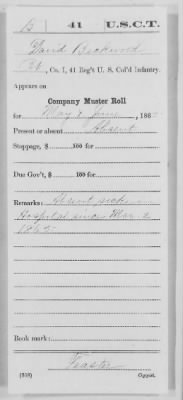 B 41 U.S.C.T.
David
Pt., Co. I, 41 Reg't U. S. Col'd Infantry.
Appears on
Company Muster Roll
for May & June, 186
Present or absent Absent
Stoppage, $ 100 for
Due Gov't, $ 100 for
Remarks: Absent sick in
Hospital since Mar. 2
1865
Book mark:
(358) Copyist.